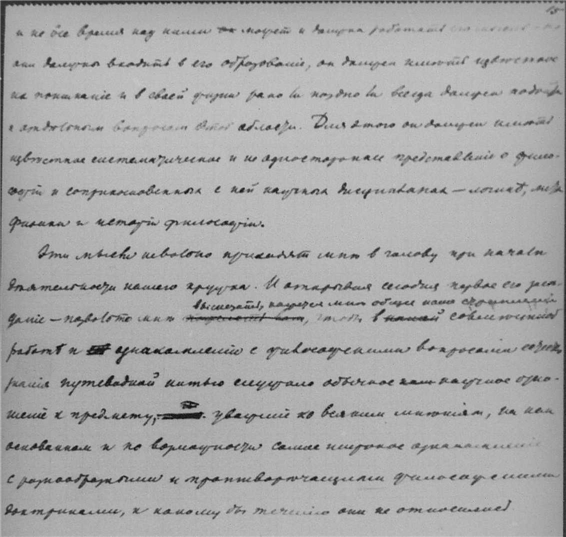 и не все время над ними может и должна работать его мысль
они должны входить в его образованіе, он должен имѣть извѣстное
пониманіе и в своей жизни рано ли поздно ли всегда должен
к отдѣльным вопросам этой области. Для этого он должен имѣть
извѣстное систематическое и не одностороннее представленіе о фило-
софіи и соприкосновенных с ней научных дисциплинах — логикѣ,
и исторіи философіи.
Эти мысли невольно приходят мнѣ в голову при началѣ
дѣятельности нашего кружка. И открывая сегодня первое его засѣ-
даніе — позвольте мнѣ высказать, кажется мнѣ общее наше
чтобы в совмѣстной
работѣ и ознакомленіи с философскими вопросами
путеводной нитью служило обычное научное отно-
шеніе к предмету, уваженіе ко всяким мнѣніям, на чем
основанном и по возможности самое широкое ознакомленіе
с разнообразными и противорѣчащими философскими
доктринами, к какому бы теченію они не относились